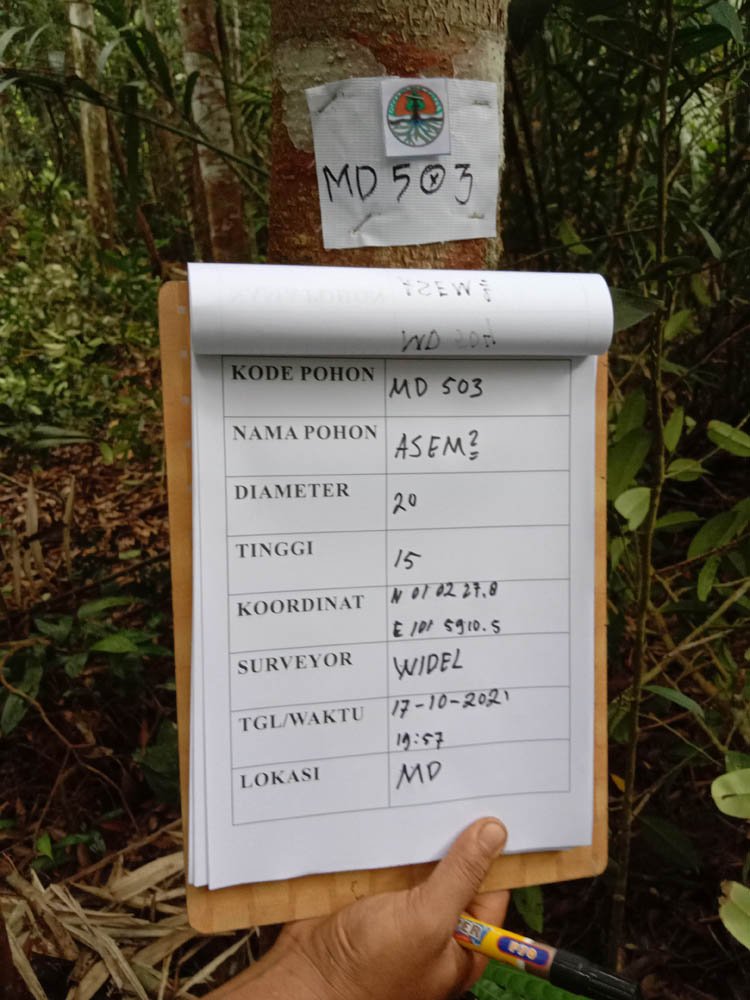 MD 503
KODE POHON MD 503
NAMA POHON ASEM2
DIAMETER 20
TINGGI 15
KOORDINAT N 01 02 27.8
E 101 5910.5
SURVEYOR WIDEL
TGL/WAKTU 17-10-2021
19:57
LOKASI MD